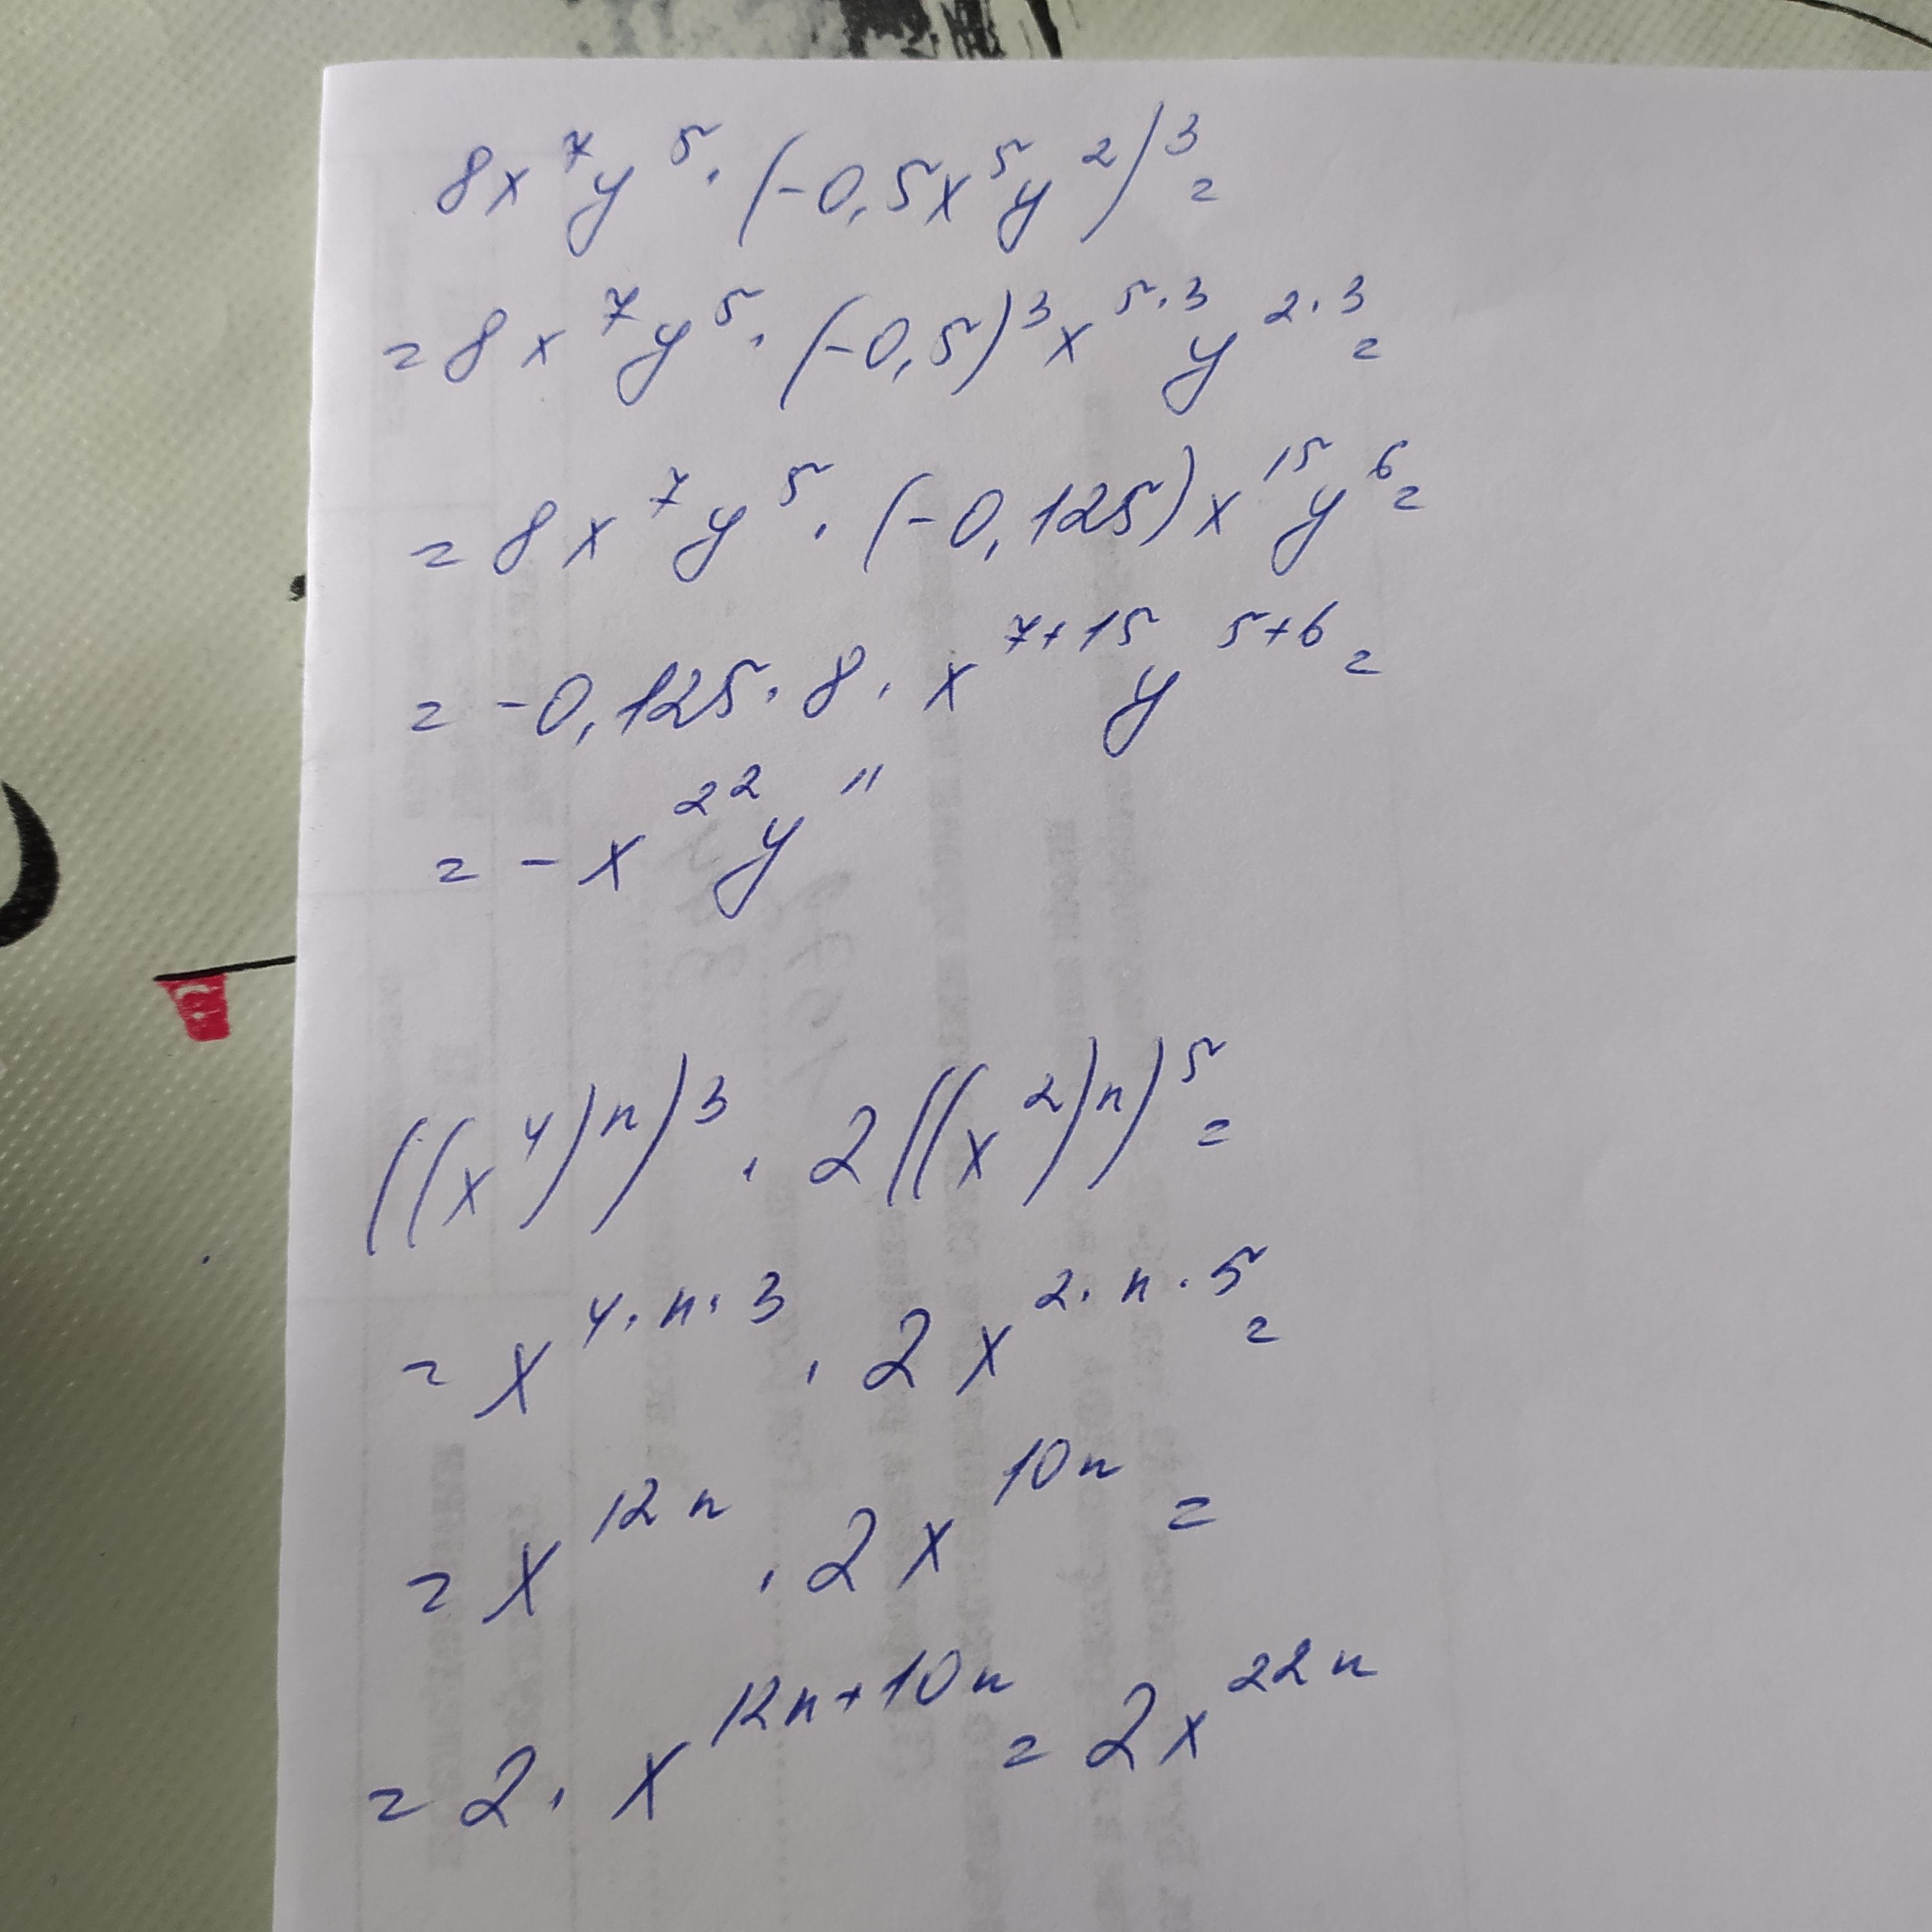 8x⁷y⁵·(-0,5x⁵y²)³=
=8x⁷y⁵·(-0,5)³x⁵·³y²·³=
=8x⁷y⁵·(-0,125)x¹⁵y⁶=
=-0,125·8·x⁷⁺¹⁵y⁵⁺⁶=
=-x²²y¹¹
((x⁴)ⁿ)³·2((x²)ⁿ)⁵=
=x⁴·ⁿ·³·2x²·ⁿ·⁵=
=x¹²ⁿ·2x¹⁰ⁿ=
=2·x¹²ⁿ⁺¹⁰ⁿ=2x²²ⁿ